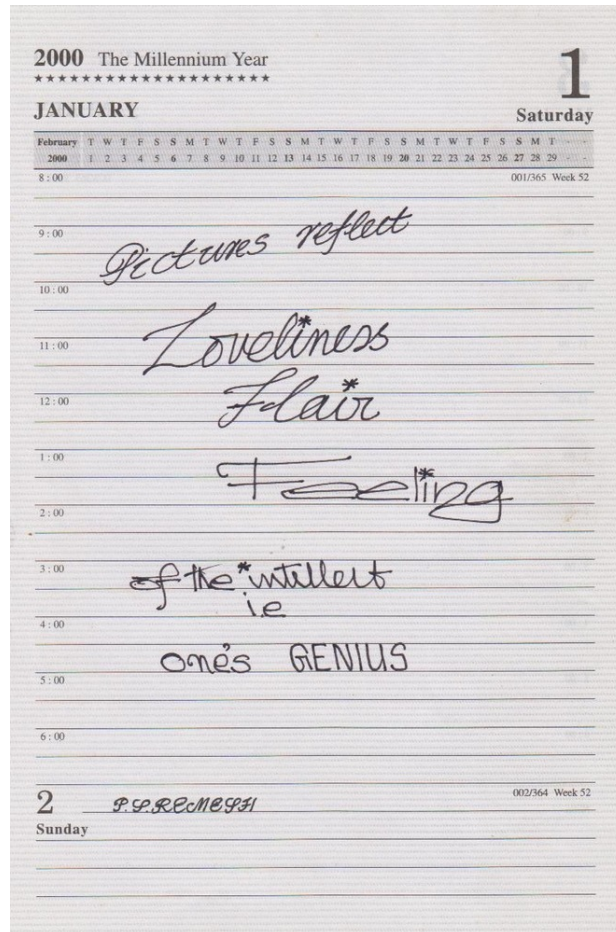 2000 The Millennium Year
★★★★★★★★★★★★★★★★★★★★★
1
JANUARY
Saturday
February T W T F S S M T W T F S S M T W T F S S M T W T F S S M T - -
2000 1 2 3 4 5 6 7 8 9 10 11 12 13 14 15 16 17 18 19 20 21 22 23 24 25 26 27 28 29 - -
8 : 00
001/365 Week 52
9 : 00
Pictures reflect
10 : 00
Loveliness
11 : 00
Flair
12 : 00
1 : 00
Feeling
2 : 00
3 : 00
of the intellect
i.e
4 : 00
one's GENIUS
5 : 00
6 : 00
2
P.S.REMESH
002/364 Week 52
Sunday